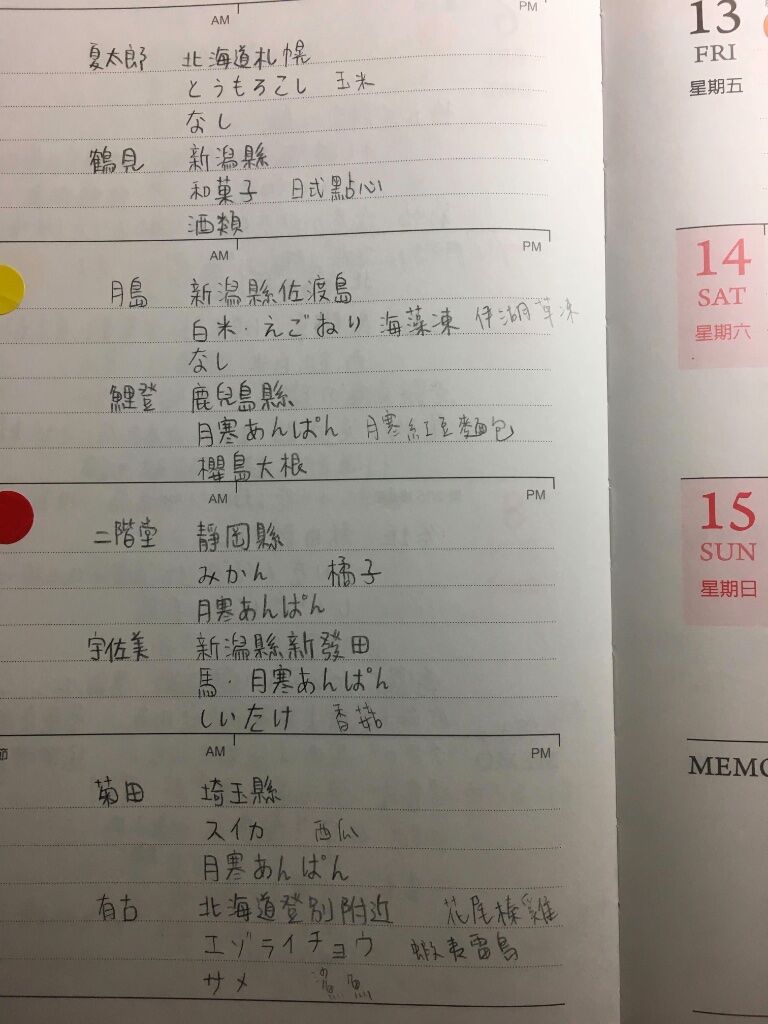 AM PM
夏太郎 北海道札幌
とうもろこし 玉米
なし
鶴見 新潟縣
和菓子 日式點心
酒類
AM PM
月島 新潟縣佐渡島
白米・えごねり 海藻凍 伊湖草凍
なし
鯉登 鹿兒島縣
月寒あんぱん 月寒紅豆麵包
櫻島大根
AM PM
二階堂 靜岡縣
みかん 橘子
月寒あんぱん
宇佐美 新潟縣新發田
馬・月寒あんぱん
しいたけ 香菇
節 AM PM
菊田 埼玉縣
スイカ 西瓜
月寒あんぱん
有古 北海道登別附近 花尾榛雞
エゾライチョウ 蝦夷雷鳥
サメ 鯊魚
13
FRI
星期五
14
SAT
星期六
15
SUN
星期日
MEMO